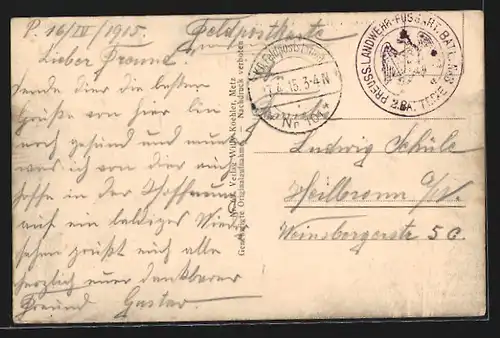 P. 16/IV/1915. Feldpostkarte
Lieber Freund.
Sende dir die besten
Grüße von hier bin
noch gesund und
was ich von dir auch
hoffe in der Hoffnung
auf ein baldiges Wieder
sehen grüßt dich alle
herzlich euer dankbarer
Freund Gustav
Verlag Willy Koehler, Metz
Gesetzlich Originalaufnahme — Nachdruck verboten
15.3-4N
Nr 101
PREUSS. LANDWEHR-FUSSART. BATL.
BATTERIE
Ludwig Schüle
Heilbronn a/N.
Weinsbergerstr. 56.